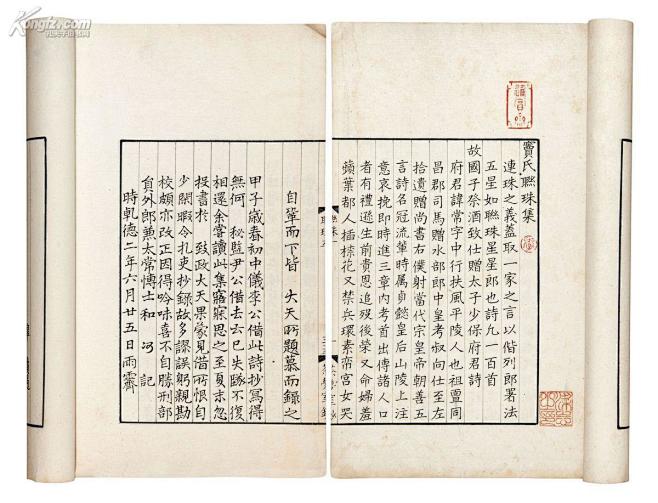 竇氏聮珠集
連珠之義蓋取一家之言以偕列郎署法
五星如聮珠星星郎也詩凡一百首
故國子祭酒致仕贈太子少保府君詩
府君諱常字中行扶風平陵人也祖亶同
昌郡司馬贈水部郎中皇考叔向仕至左
拾遺贈尚書右僕射當代宗皇帝朝善五
言詩名冠流輩時屬貞懿皇后山陵上注
意哀挽即時進三章内考首出傳諸人口
者有禮遜生前貴恩追殁後榮又命婦羞
蘋葉都人插柰花又禁兵環素帝宮女哭
自鞏而下皆 大天所題慕而錄之
甲子歲春初中儀李公借此詩抄寫得
無何 秘監尹公借去云已失蹤不復
相還余嘗讀此集寤寐思之至夏末忽
投書於 致政大天果蒙見借所恨自
少閑暇令扎吏抄錄故多謬誤躬親勘
校頗亦改正因得吟味喜不自勝刑部
貟外郎兼太常愽士和 記
時乹德二年六月廿五日雨霽
Kongfz.com
孔夫子旧书网